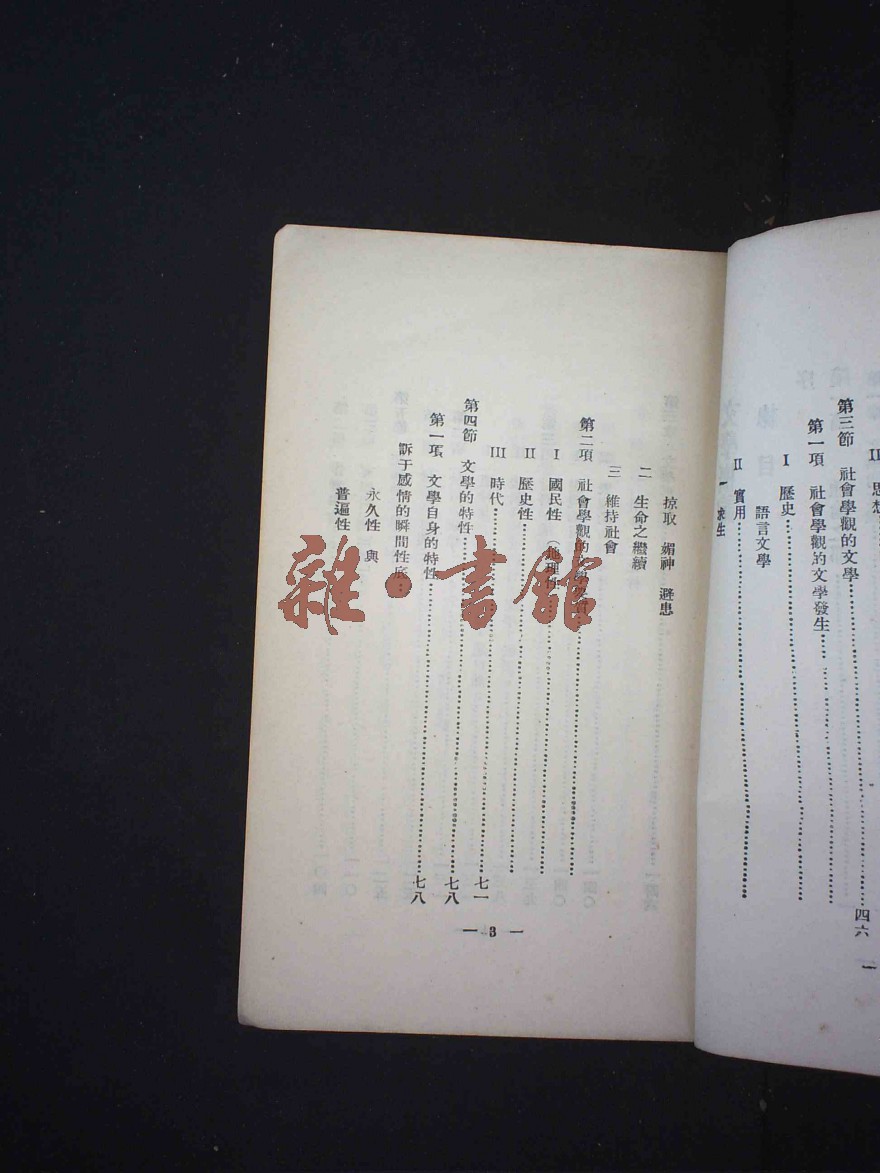 II 思想
第三節 社會學觀的文學……四六
第一項 社會學觀的文學發生……
I 歷史……
語言文學
II 實用……
一 求生
掠取 媚神 避患
二 生命之繼續
三 維持社會
第二項 社會學觀的……
I 國民性（地理性……
II 歷史性……
III 時代……七一
第四節 文學的特性……七八
第一項 文學自身的特性……七八
訴于感情的瞬間性底……
永久性 與
普遍性
— 3 —
雜·書館